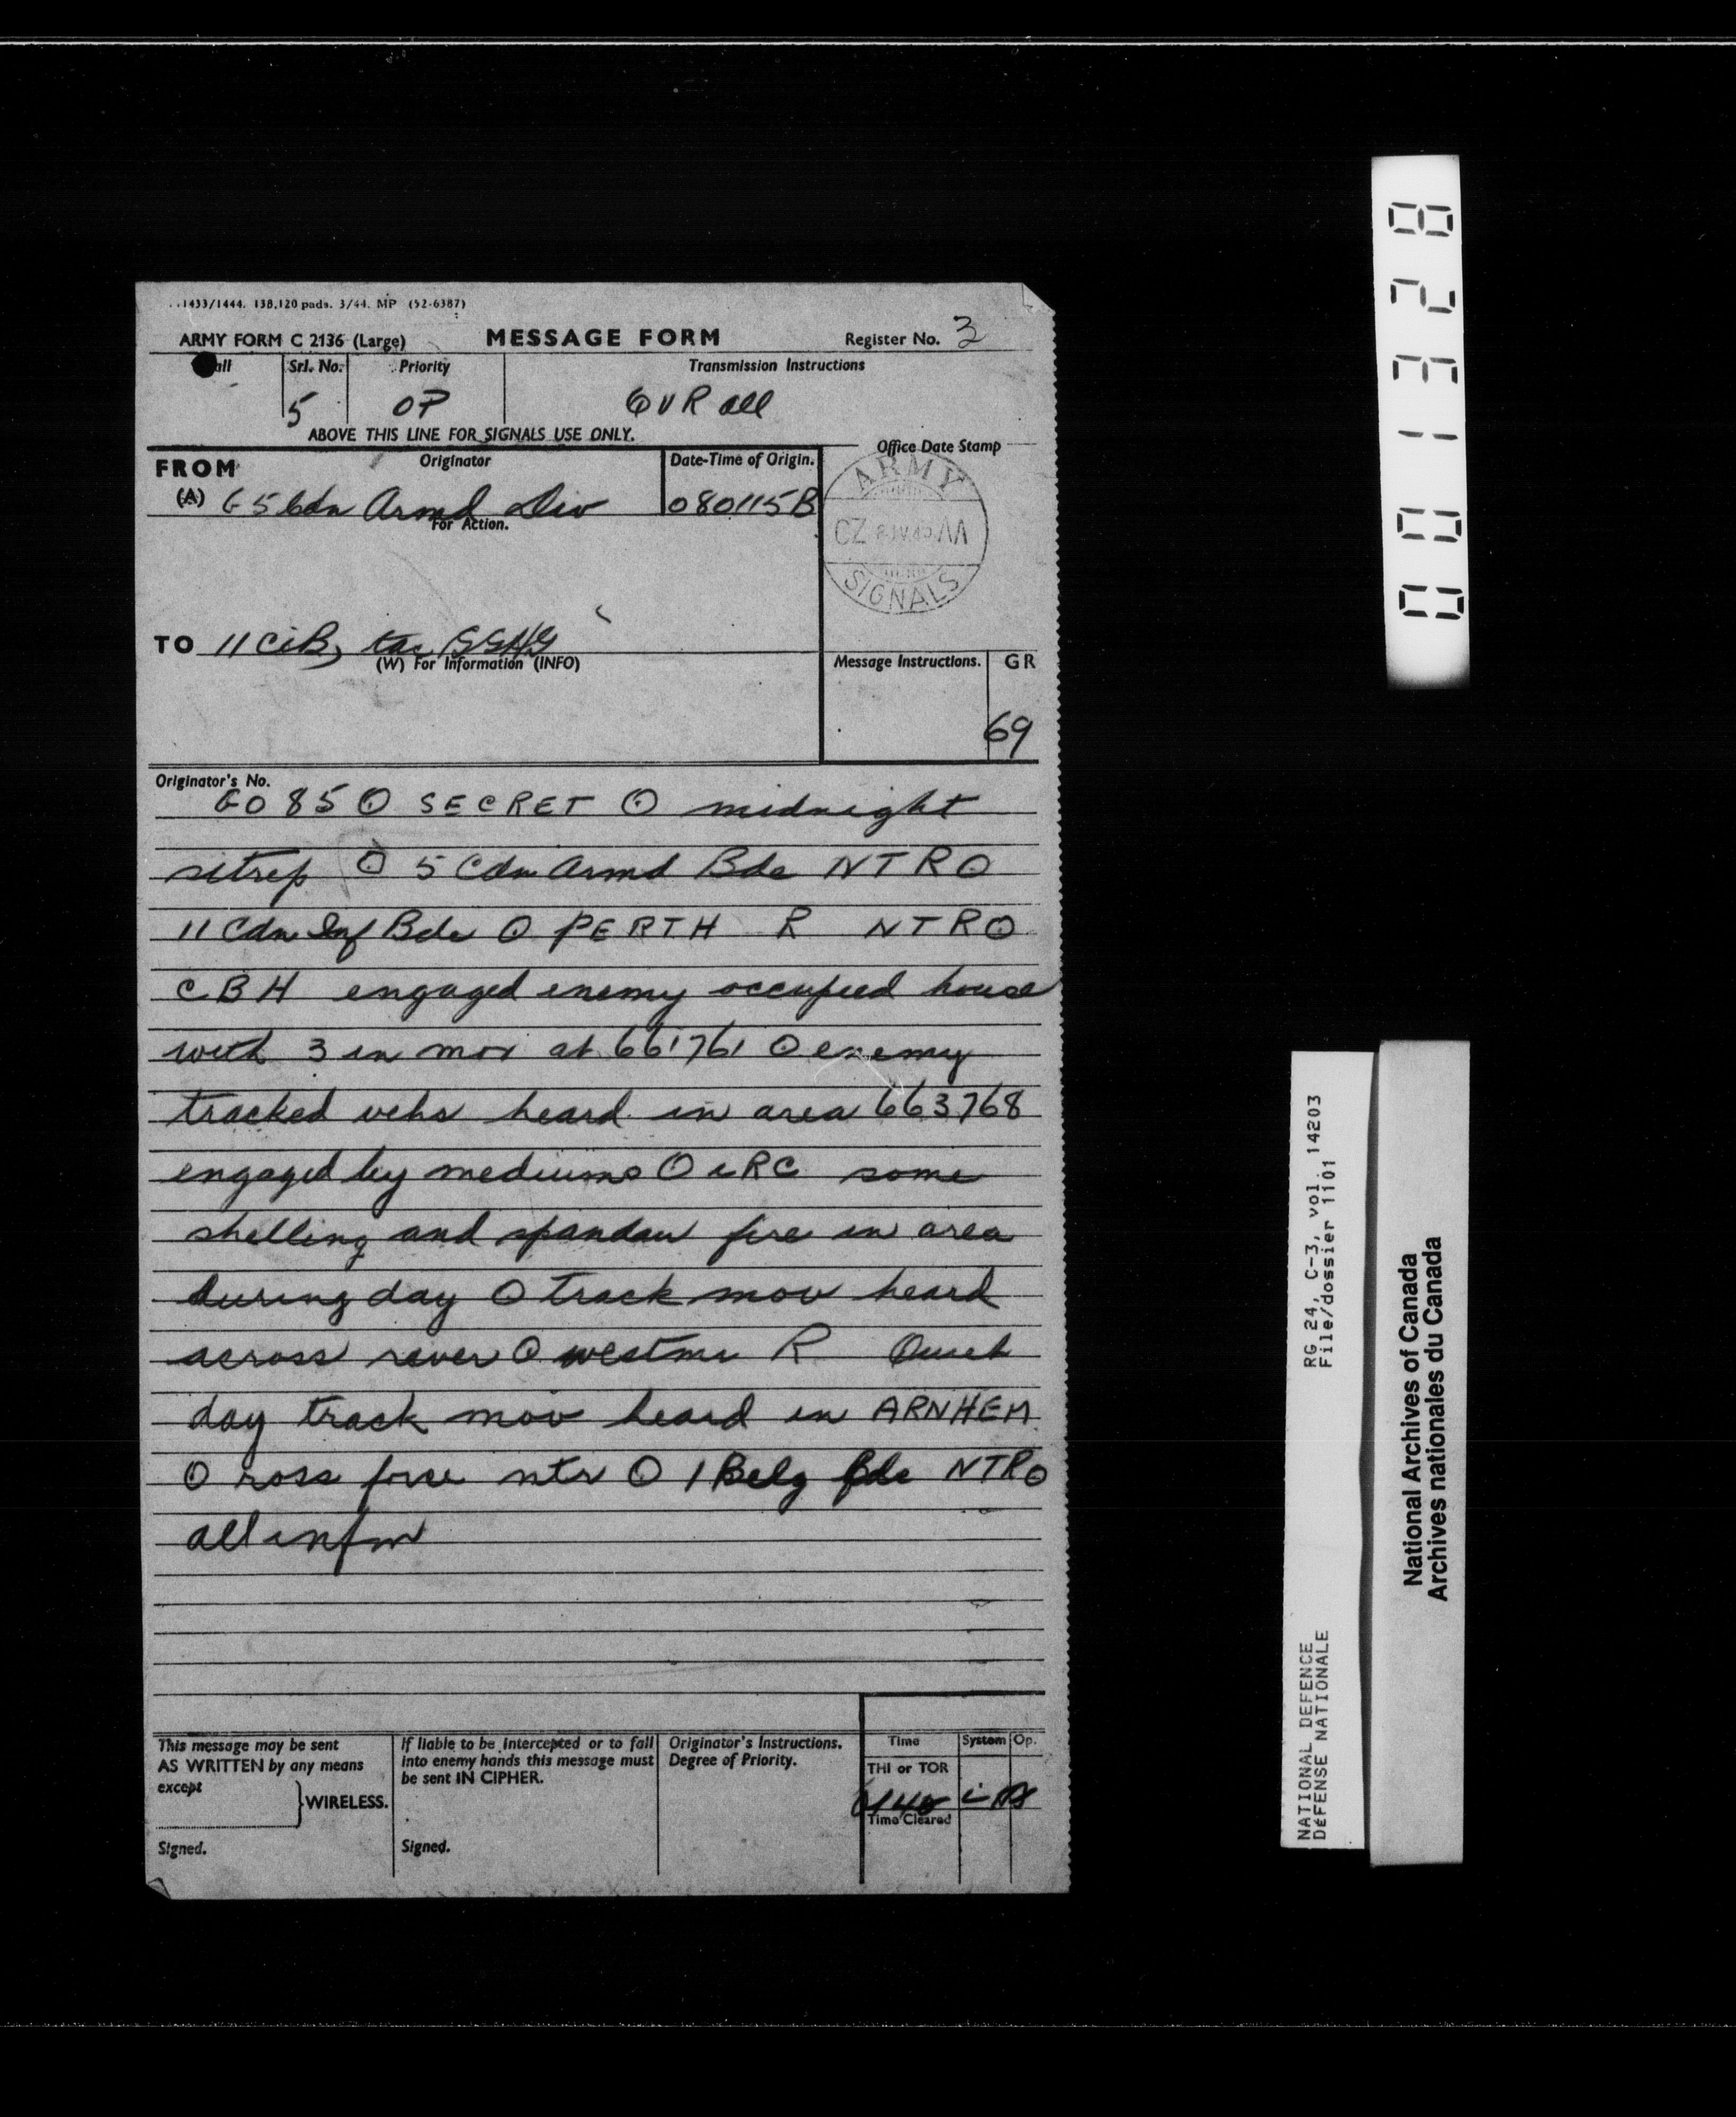 1433/1444. 138,120 pads. 3/44. MP (52-6387)
ARMY FORM C 2136 (Large) MESSAGE FORM Register No. 3
Call Srl. No. Priority Transmission Instructions
5 OP QVR all
ABOVE THIS LINE FOR SIGNALS USE ONLY.
FROM Originator Date-Time of Origin. Office Date Stamp
(A) G 5 Cdn Armd Div 080115B
For Action.
ARMY
CZ
SIGNALS
TO 11 CiB, tac GGHG
(W) For Information (INFO)
Message Instructions. GR
69
Originator's No.
GO 85 ⊙ SECRET ⊙ midnight
sitrep ⊙ 5 Cdn Armd Bde NTR ⊙
11 Cdn Inf Bde ⊙ PERTH R NTR ⊙
CBH engaged enemy occupied house
with 3 in mor at 661761 ⊙ enemy
tracked vehs heard in area 663768
engaged by mediums ⊙ iRC some
shelling and spandau fire in area
during day ⊙ track mov heard
across river ⊙ westmr R Quiet
day track mov heard in ARNHEM
⊙ ross force ntr ⊙ 1 Belg Bde NTR ⊙
all infm
This message may be sent
AS WRITTEN by any means
except
WIRELESS.
Signed.
If liable to be intercepted or to fall
into enemy hands this message must
be sent IN CIPHER.
Signed.
Originator's Instructions.
Degree of Priority.
Time System Op.
THI or TOR
Time Cleared
001328
RG 24, C-3, vol. 14203
File/dossier 1101
NATIONAL DEFENCE
DÉFENSE NATIONALE
National Archives of Canada
Archives nationales du Canada